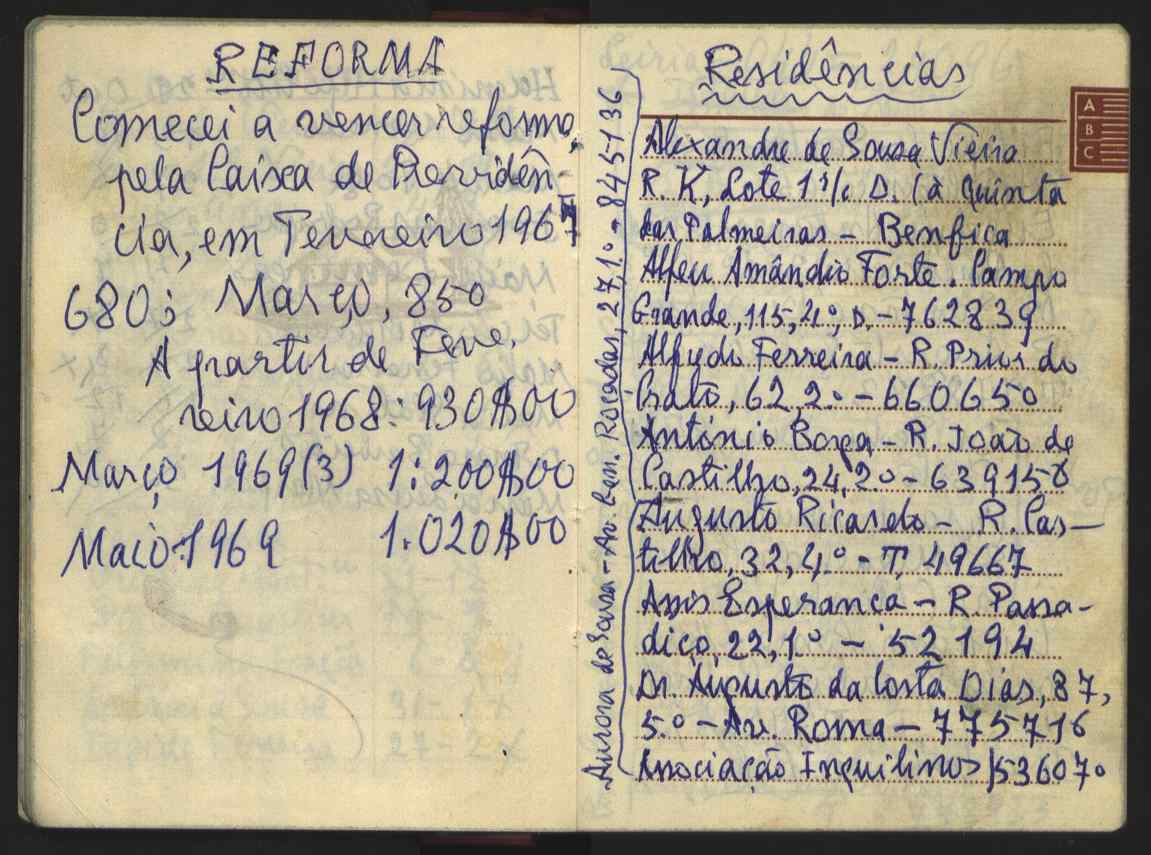 REFORMA
Comecei a vencer reforma,
pela Caixa de Previdên-
cia, em Fevereiro 1967
680; Março, 850
A partir de Feve.
reiro 1968: 930$00
Março 1969(3) 1:200$00
Maio 1969 1.020$00
Residências
A
B
C
Alexandre de Sousa Vieira
R. K, Lote 1 D. (à Quinta
das Palmeiras - Benfica
Alfeu Amândio Forte. Campo
Grande, 115, 4º, D. - 762839
Alfredo Ferreira - R. Prior do
Crato, 62, 2.º - 660650
António Borga - R. João de
Castilho, 24, 2.º - 639158
Augusto Ricardo - R. Cas-
tilho, 32, 4.º - T. 49667
Assis Esperança - R. Passa-
diço, 22, 1º - 52194
Dr. Augusto da Costa Dias, 87,
5.º - Av. Roma - 775716
Associação Inquilinos / 536070
Aurora de Sousa - Av. Gen. Roçadas, 27, 1.º - 845136